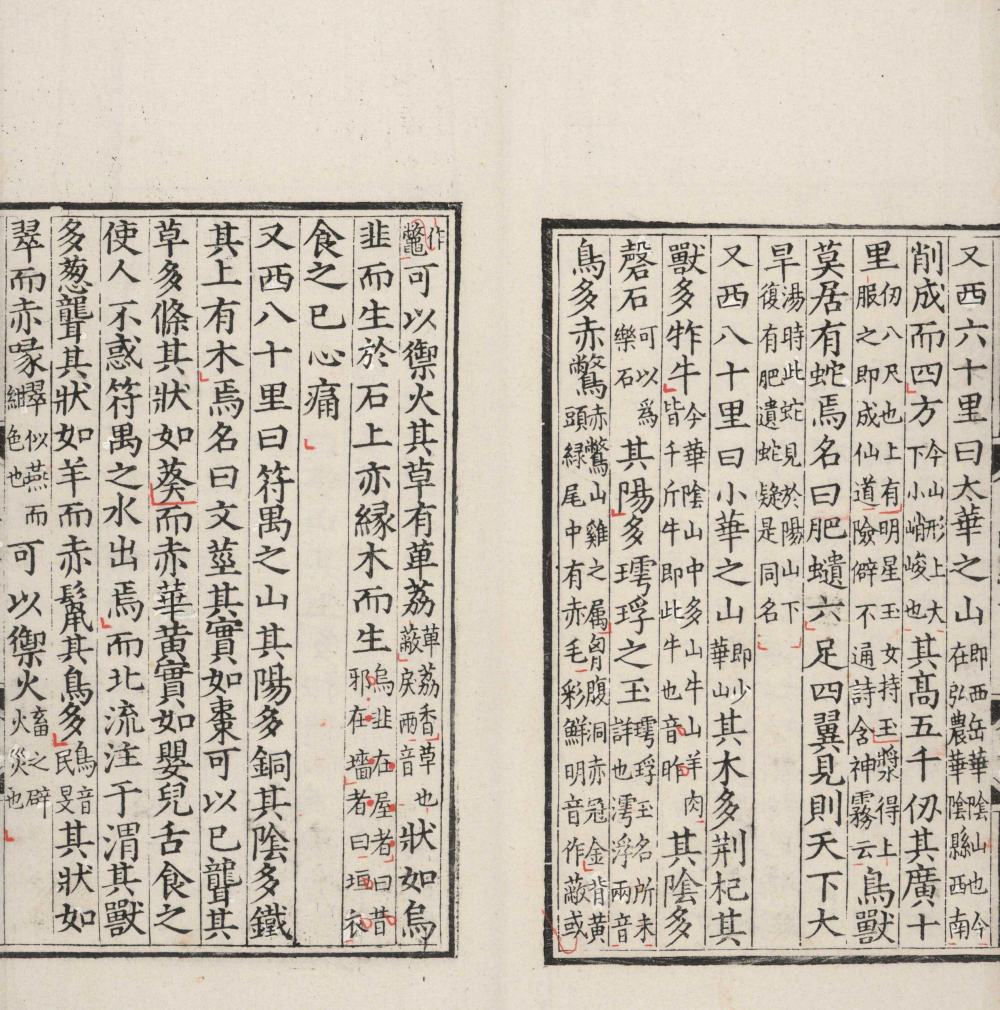 又西六十里曰太華之山即西岳華陰山也今在弘農華陰縣西南
削成而四方今山形上大下小峭峻也其高五千仞其廣十
里仞八尺也上有明星玉女持玉漿得上服之即成仙道險僻不通詩含神霧云鳥獸
莫居有蛇焉名曰肥𧔥六足四翼見則天下大
旱湯時此蛇見於陽山下復有肥遺蛇疑是同名
又西八十里曰小華之山即少華山其木多荆杞其
獸多㸲牛今華陰山中多山牛山羊肉皆千斤牛即此牛也音昨其陰多
磬石可以為樂石其陽多㻬琈之玉㻬琈玉名所未詳也滹浮兩音
鳥多赤鷩赤鷩山雞之属胷腹洞赤冠金背黃頭綠尾中有赤毛彩鮮明音作蔽或
作鼈可以禦火其草有萆荔萆荔香草也蔽戾兩音狀如烏
韭而生於石上亦緣木而生烏韭在屋者曰昔邪在墻者曰垣衣
食之已心痛
又西八十里曰符禺之山其陽多銅其陰多鐵
其上有木焉名曰文莖其實如棗可以已聾其
草多條其狀如葵而赤華黃實如嬰兒舌食之
使人不惑符禺之水出焉而北流注于渭其獸
多葱聾其狀如羊而赤鬛其鳥多鳥音民旻其狀如
翠而赤喙翠似燕而紺色也可以禦火畜之辟火災也